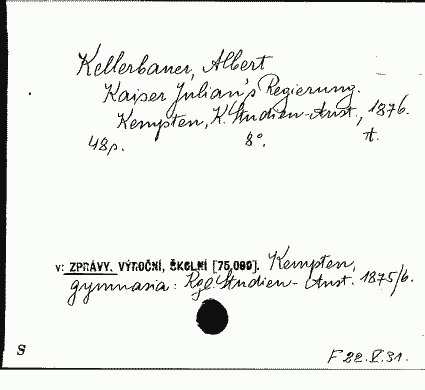 Kellerbauer, Albert
Kaiser Julian's Regierung.
Kempten, K. Studien-Anst., 1876.
48p. 8°. tt.
v: ZPRÁVY, VÝROČNÍ, ŠKOLNÍ [75,089]. Kempten,
gymnasia: Kgl. Studien-Anst. 1875/6.
S
F 22.V.31.